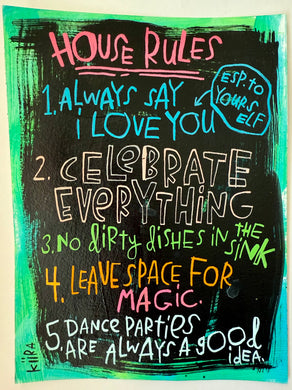 HOUSE RULES
1. ALWAYS SAY
i LOVE YOU
ESP. to
YOURS
ELF
2. CELeBRATE
EVeRYTHING
3. NO diRty disHes iN THE
SiNK
4. LEAVE SPACE FOR
MAGIC.
5. DANCE PARties
ARE ALWAYS A gOOd
idEA.
kiiRA